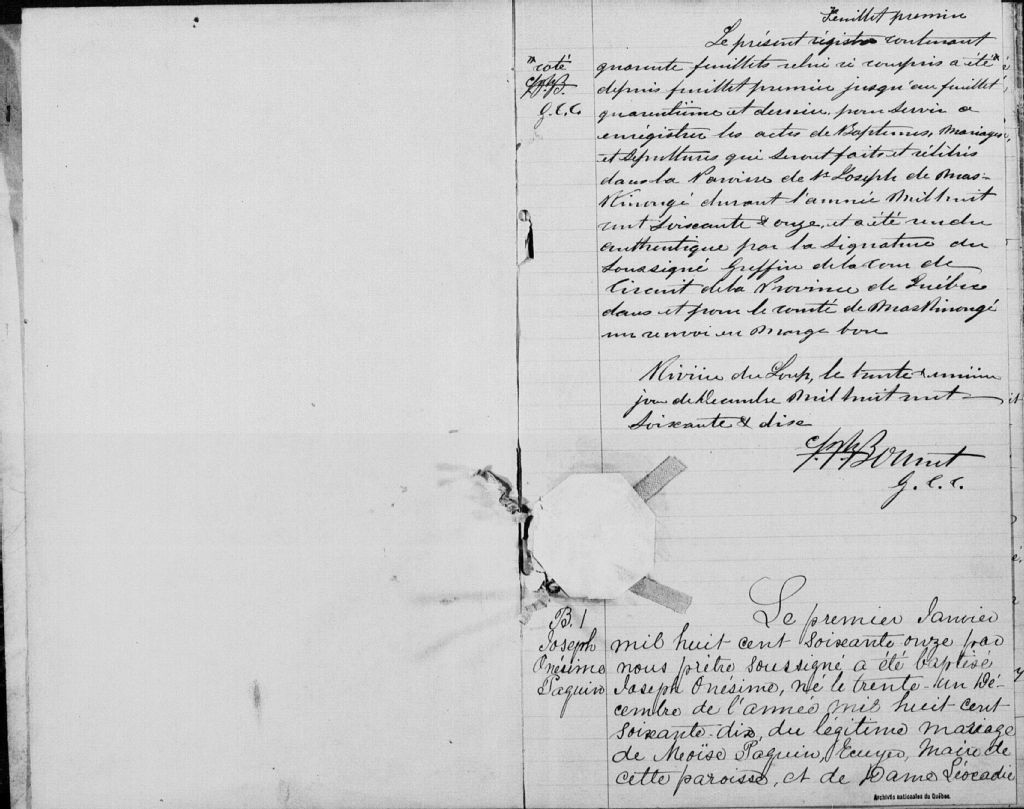 Feuillet premier
Le présent régistre contenant
quarante feuillets celui ci compris a été "
depuis feuillet premier jusqu'au feuillet
quarantième et dernier, pour servir a
enrégistrer les actes de Baptêmes, Mariages
et Sepultures qui seront faits et célébrés
dans la Paroisse de St Joseph de Mas-
kinongé durant l'année Mil huit
cent soixante & onze, et a été rendu
authentique par la signature du
soussigné Greffier de la cour de
Circuit de la Province de Québec
dans et pour le comté de Maskinongé
un renvoi en marge bon
" coté
G.C.C.
Rivière du Loup, le trente & unième
jour de Décembre Mil huit cent
soixante & dix
G.C.C.
B. 1
Joseph
Onésime
Paquin
Le premier Janvier
mil huit cent soixante onze par
nous prêtre soussigné a été baptisé
Joseph Onésime, né le trente-un Dé-
cembre de l'année mil huit cent
soixante-dix, du légitime mariage
de Moïse Paquin, Ecuyer, Maire de
cette paroisse, et de Dame Léocadie
Archives nationales du Québec